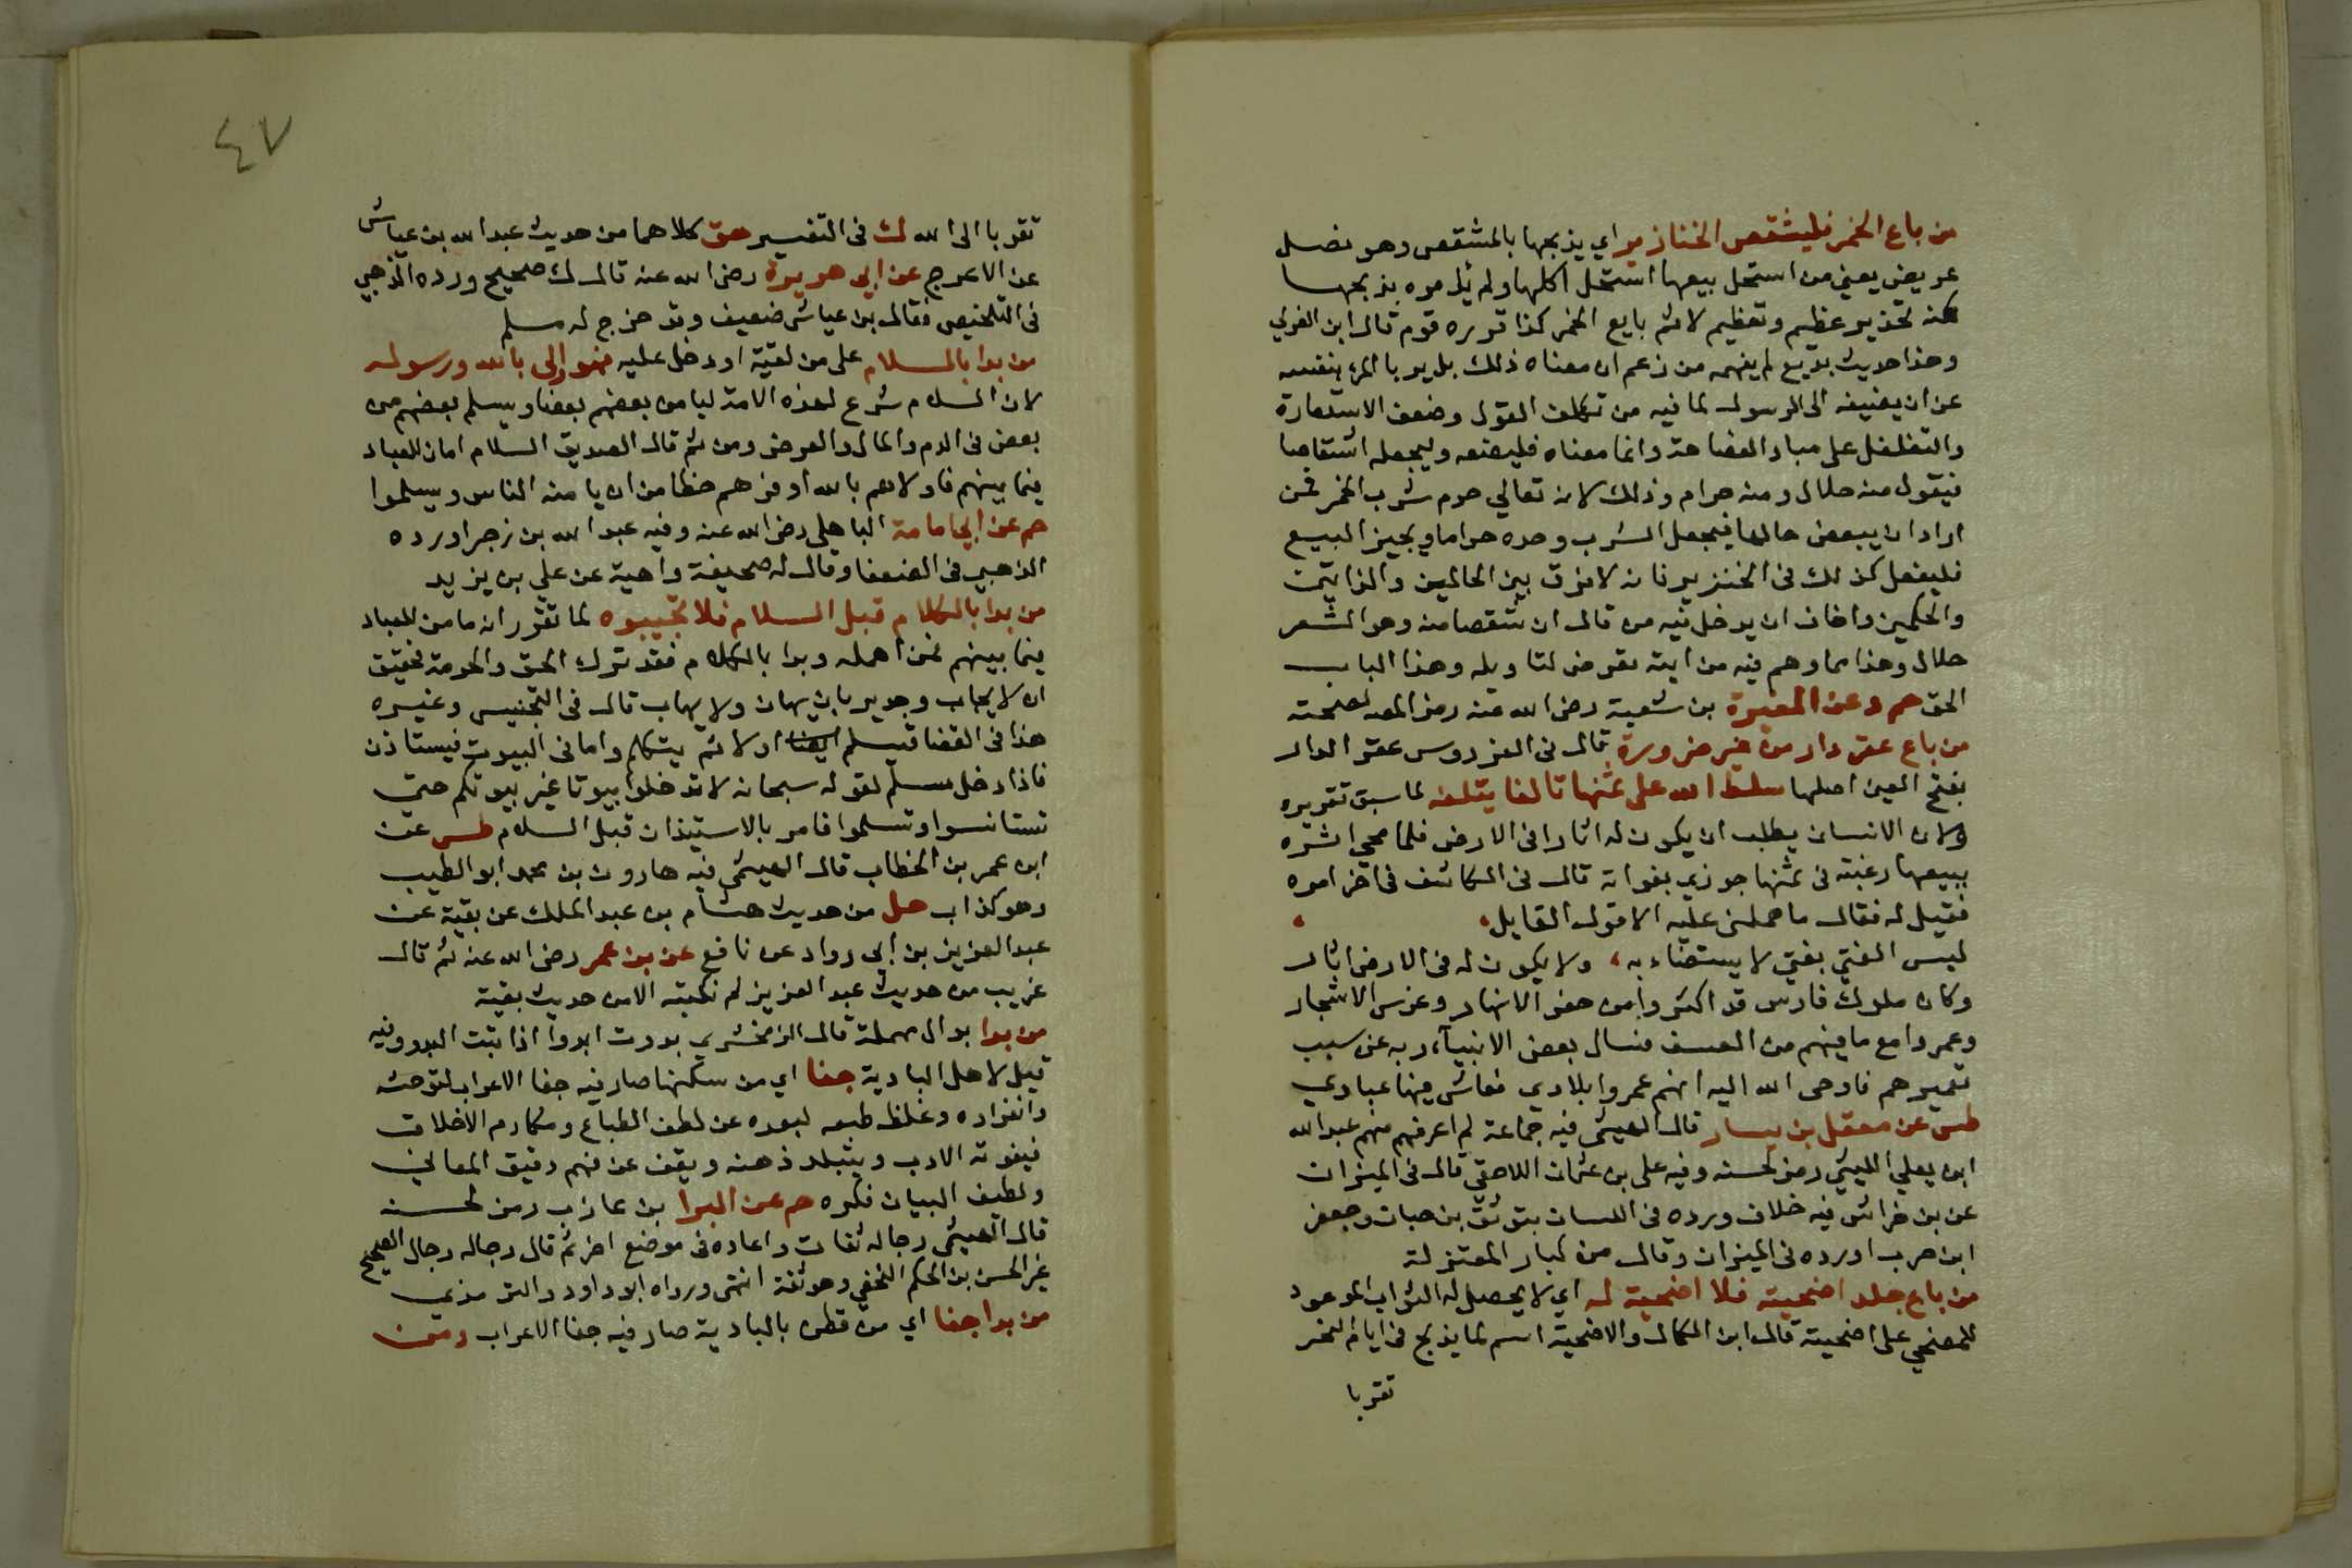 من باع الخمر فليشقص الخنازير اي يذبحها بالمشقص وهو نصل
عريض يعني من استحل بيعها استحل اكلها ولم يأمره بذبحها
لكنه تحذير عظيم وتعظيم لاثم بايع الخمر كذا قرره قوم قال ابن العربي
وهذا حديث بديع لم يفهمه من زعم ان معناه ذلك بل يربا المرء بنفسه
عن ان يضيفه الى الرسول لما فيه من تكلف القول وضعف الاستعارة
والتغلغل على مباد الفصاحة وانما معناه فليضعه وليجعله اشقاصا
فيقول منه حلال ومنه حرام وذلك لانه تعالى حرم شرب الخمر فمن
اراد ان يبعض حالها فيجعل الشرب وحده حراما ويجيز البيع
فليفعل كذلك في الخنزير فانه لا فرق بين الحالين والذاتين
والحكمين واخاف ان يدخل فيه من قال ان شقصا منه وهو الشعر
حلال وهذا مما وهم فيه من ايته تعرض لتاويله وهذا الباب
الحق حم د عن المغيرة بن شعبة رضى الله عنه رمز المص لصحته
من باع عقر دار من غير ضرورة قال في الفردوس عقر الدار
بفتح العين اصلها سلط الله على ثمنها تالفا يتلفه لما سبق تقريره
ولان الانسان يطلب ان يكون له اثارا في الارض فلما محي اثره
ببيعها رغبة في ثمنها جوزي بفواته قال في الكاشف في اخر امره
فقيل له فقال ما حملني عليه الا قول القايل
ليس الفتى بفتى لا يستضاء به ولا يكون له في الارض اثار
وكان ملوك فارس قد اكثروا من حفر الانهار وغرس الاشجار
وعمروا مع ما فيهم من العسف فسال بعض الانبياء ربه عن سبب
تعميرهم فاوحى الله اليه انهم عمروا بلادي فعاش فيها عبادي
طس عن معقل بن يسار قال الهيثمي فيه جماعة لم اعرفهم منهم عبد الله
ابن يعلي الليثي رمز لحسنه وفيه علي بن عثمان اللاحقي قال في الميزان
عن بن خراش فيه خلاف ورده في اللسان بتوثيق بن حبان وجعفر
ابن حرب اورده في الميزان وقال من كبار المعتزلة
من باع جلد اضحيته فلا اضحية له اي لا يحصل له الثواب الموعود
للمضحي على اضحيته قال ابن الكمال والاضحية اسم لما يذبح في ايام النحر
تقربا
٤٧
تقربا الى الله ك في التفسير هق كلاهما من حديث عبد الله بن عياش
عن الاعرج عن ابي هريرة رضى الله عنه قال ك صحيح ورده الذهبي
في التلخيص فقال بن عياش ضعيف وقد خرج له مسلم
من بدا بالسلام على من لقيه او دخل عليه فهو اولى بالله ورسوله
لان السلام شرع لهذه الامة ليامن بعضهم بعضا ويسلم بعضهم من
بعض في الدم والمال والعرض ومن ثم قال الصديق السلام امان للعباد
فيما بينهم فاولاهم بالله اوفرهم حظا من ان يامنه الناس ويسلموا
حم عن ابي امامة الباهلي رضى الله عنه وفيه عبد الله بن زحر اورده
الذهبي في الضعفا وقال له صحيفة واهية عن علي بن يزيد
من بدا بالكلام قبل السلام فلا تجيبوه لما تقرر انه مامن للعباد
فيما بينهم فمن اهمله وبدا بالكلام فقد ترك الحق والحرمة فحقيق
ان لا يجاب وجدير بان يهان ولا يهاب قال في التجنيس وغيره
هذا في الفضا فيسلم اولا ثم يتكلم واما في البيوت فيستاذن
فاذا دخل سلم لقوله سبحانه لا تدخلوا بيوتا غير بيوتكم حتى
تستانسوا وتسلموا فامر بالاستيذان قبل السلام طس عن
ابن عمر بن الخطاب قال الهيثمي فيه هارون بن محمد ابو الطيب
وهو كذاب حل من حديث هشام بن عبد الملك عن بقية عن
عبد العزيز بن ابي رواد عن نافع عن بن عمر رضى الله عنه ثم قال
غريب من حديث عبد العزيز لم نكتبه الا من حديث بقية
من بدا بدال مهملة قال الزمخشري بدوت ابدوا اذا اتيت البدو وفيه
قيل لاهل البادية جفا اي من سكنها صار فيه جفا الاعراب لتوحشه
وانفراده وغلظ طبعه لبعده عن لطف الطباع ومكارم الاخلاق
فيفوته الادب ويتبلد ذهنه ويقف عن فهم دقيق المعاني
ولطيف البيان فكره حم عن البرا بن عازب رمز لحسنه
قال الهيثمي رجاله ثقات واعاده في موضع اخر ثم قال رجاله رجال الصحيح
غير الحسن بن الحكم النخعي وهو ثقة انتهى ورواه ابو داود والترمذي
من بدا جفا اي من قطن بالبادية صار فيه جفا الاعراب ومن